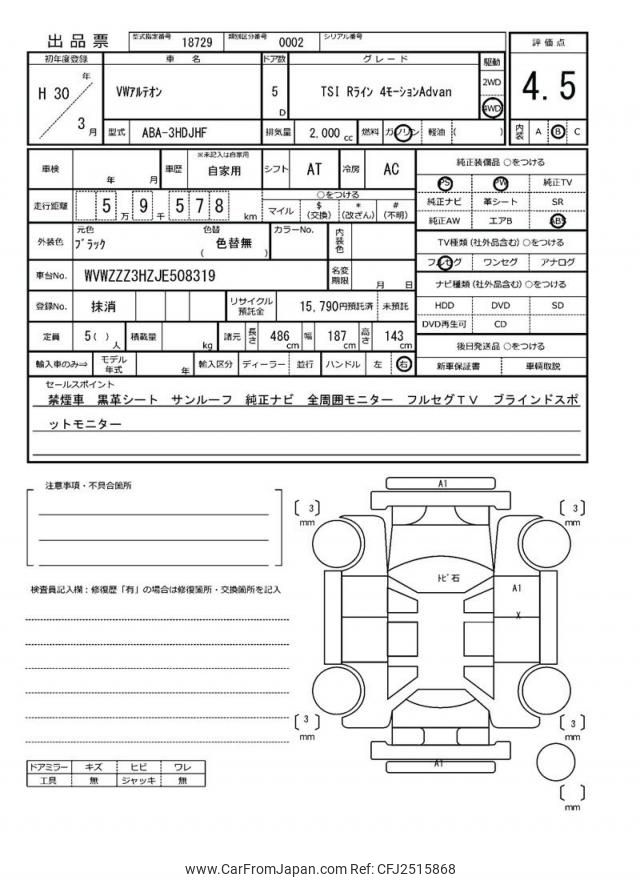 出品票 型式指定番号 18729 類別区分番号 0002 シリアル番号
評価点
4.5
初年度登録 車名 ドア数 グレード 駆動
H 30 年 3 月
VWｱﾙﾃｵﾝ 5 D TSI Rライン 4モーションAdvan 2WD 4WD
型式 ABA-3HDJHF 排気量 2,000 cc 燃料 ガソリン 軽油 ( )
内装 A B C
車検 年 月 車歴 ※未記入は自家用 自家用 シフト AT 冷房 AC
純正装備品 ○をつける
PS PW 純正TV
純正ナビ 革シート SR
純正AW エアB ABS
走行距離 5 万 9 千 5 7 8 km
○をつける
マイル $ (交換) * (改ざん) # (不明)
外装色 元色 ﾌﾞﾗｯｸ 色替 色替無 ( ) カラーNo. 内装色
TV種類 (社外品含む) ○をつける
フルセグ ワンセグ アナログ
車台No. WVWZZZ3HZJE508319 名変期限 月 日
ナビ種類 (社外品含む) ○をつける
HDD DVD SD
DVD再生可 CD
登録No. 抹消 リサイクル預託金 15,790円預託済 未預託
定員 5( ) 人 積載量 kg 諸元 長さ 486 cm 幅 187 cm 高さ 143 cm
後日発送品 ○をつける
新車保証書 車輌取説
輸入車のみ⇒ モデル年式 年 輸入区分 ディーラー 並行 ハンドル 左 右
セールスポイント
禁煙車 黒革シート サンルーフ 純正ナビ 全周囲モニター フルセグＴＶ ブラインドスポ
ットモニター
注意事項・不具合箇所
検査員記入欄：修復歴「有」の場合は修復箇所・交換箇所を記入
A1
3 mm
3 mm
ﾄﾋﾞ石
A1
X
3 mm
3 mm
A1
mm
ドアミラー キズ ヒビ ワレ
工具 無 ジャッキ 無
www.CarFromJapan.com Ref: CFJ2515868